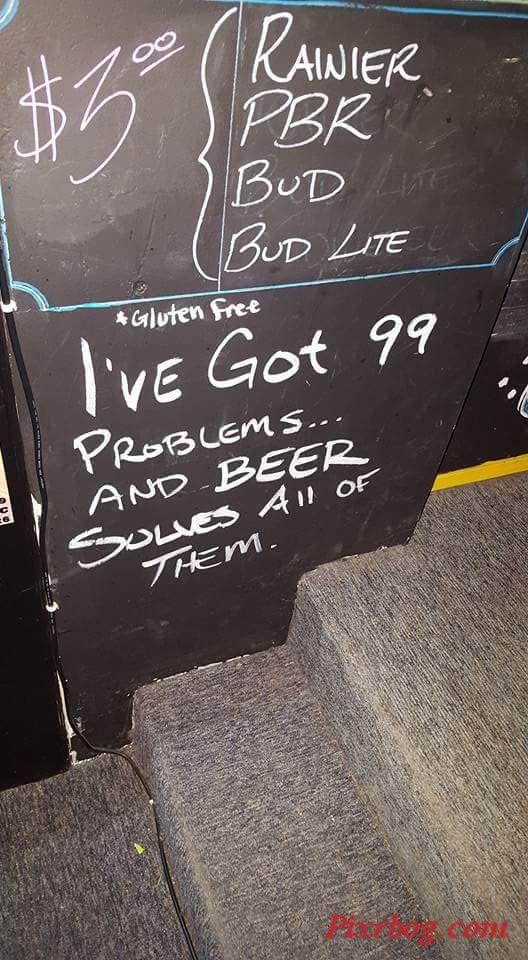 $3.00
RAINIER
PBR
BUD
BUD LITE
*Gluten Free
I'VE Got 99
PROBLEMS...
AND BEER
SOLVES All OF
THEM.
Pixrbog.com